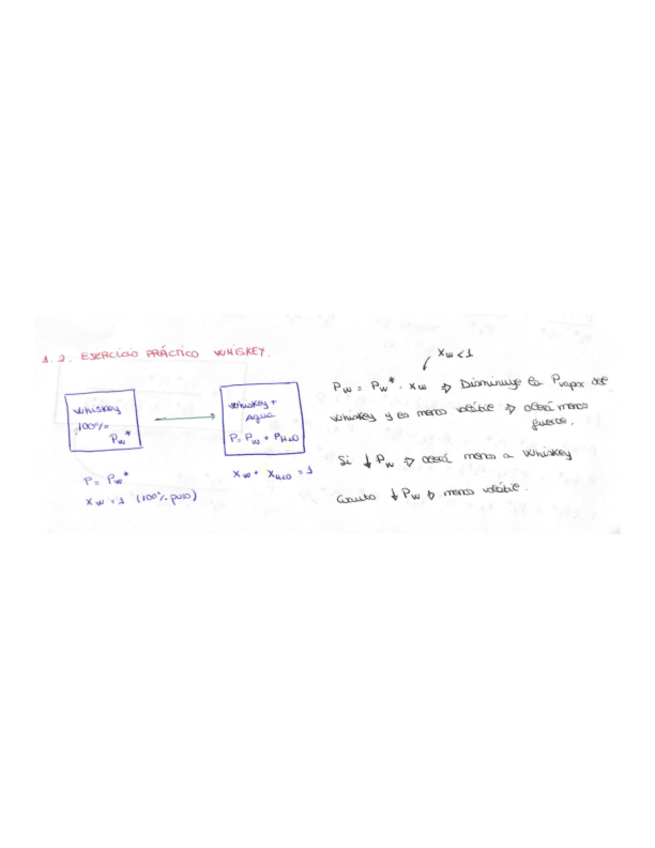 1.2. EJERCICIO PRÁCTICO WHISKEY.
Whiskey
100%
Pw*
P = Pw*
Xw = 1 (100% puro)
Whiskey +
Agua
P = Pw + PH₂O
Xw + XH₂O = 1
Xw < 1
Pw = Pw* · Xw ⇒ Disminuye la Pvapor del
whiskey y es menos volátil ⇒ olerá menos
fuerte.
Si ↓ Pw ⇒ olerá menos a Whiskey
Cuanto ↓ Pw ⇒ menos volátil.